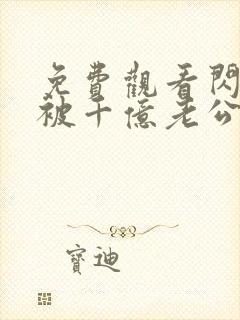 免費觀看閃
被千億老公
寶迪